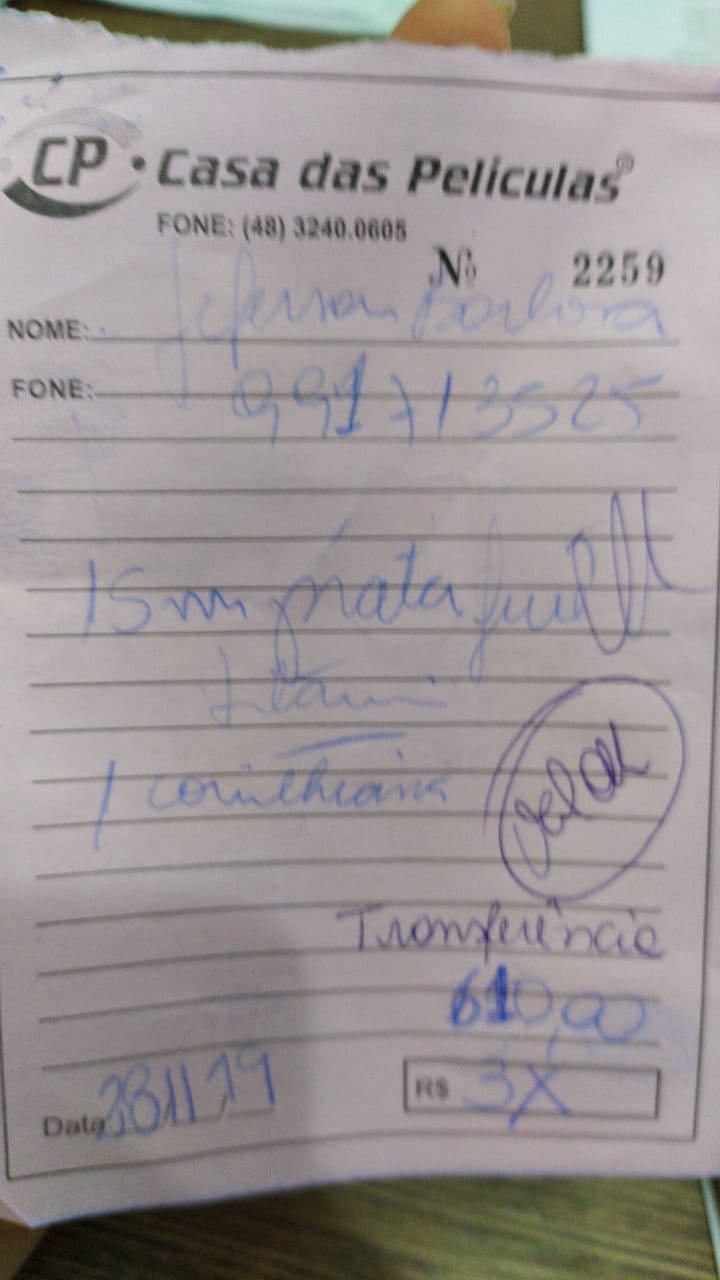 CP • Casa das Películas®
FONE: (48) 3240.0605
Nº 2259
NOME: Jeferson Barbosa
FONE: 991713525
15 m prata
1 corinthiana
Transferência
610,00
Data: 28/11/19
R$ 3X